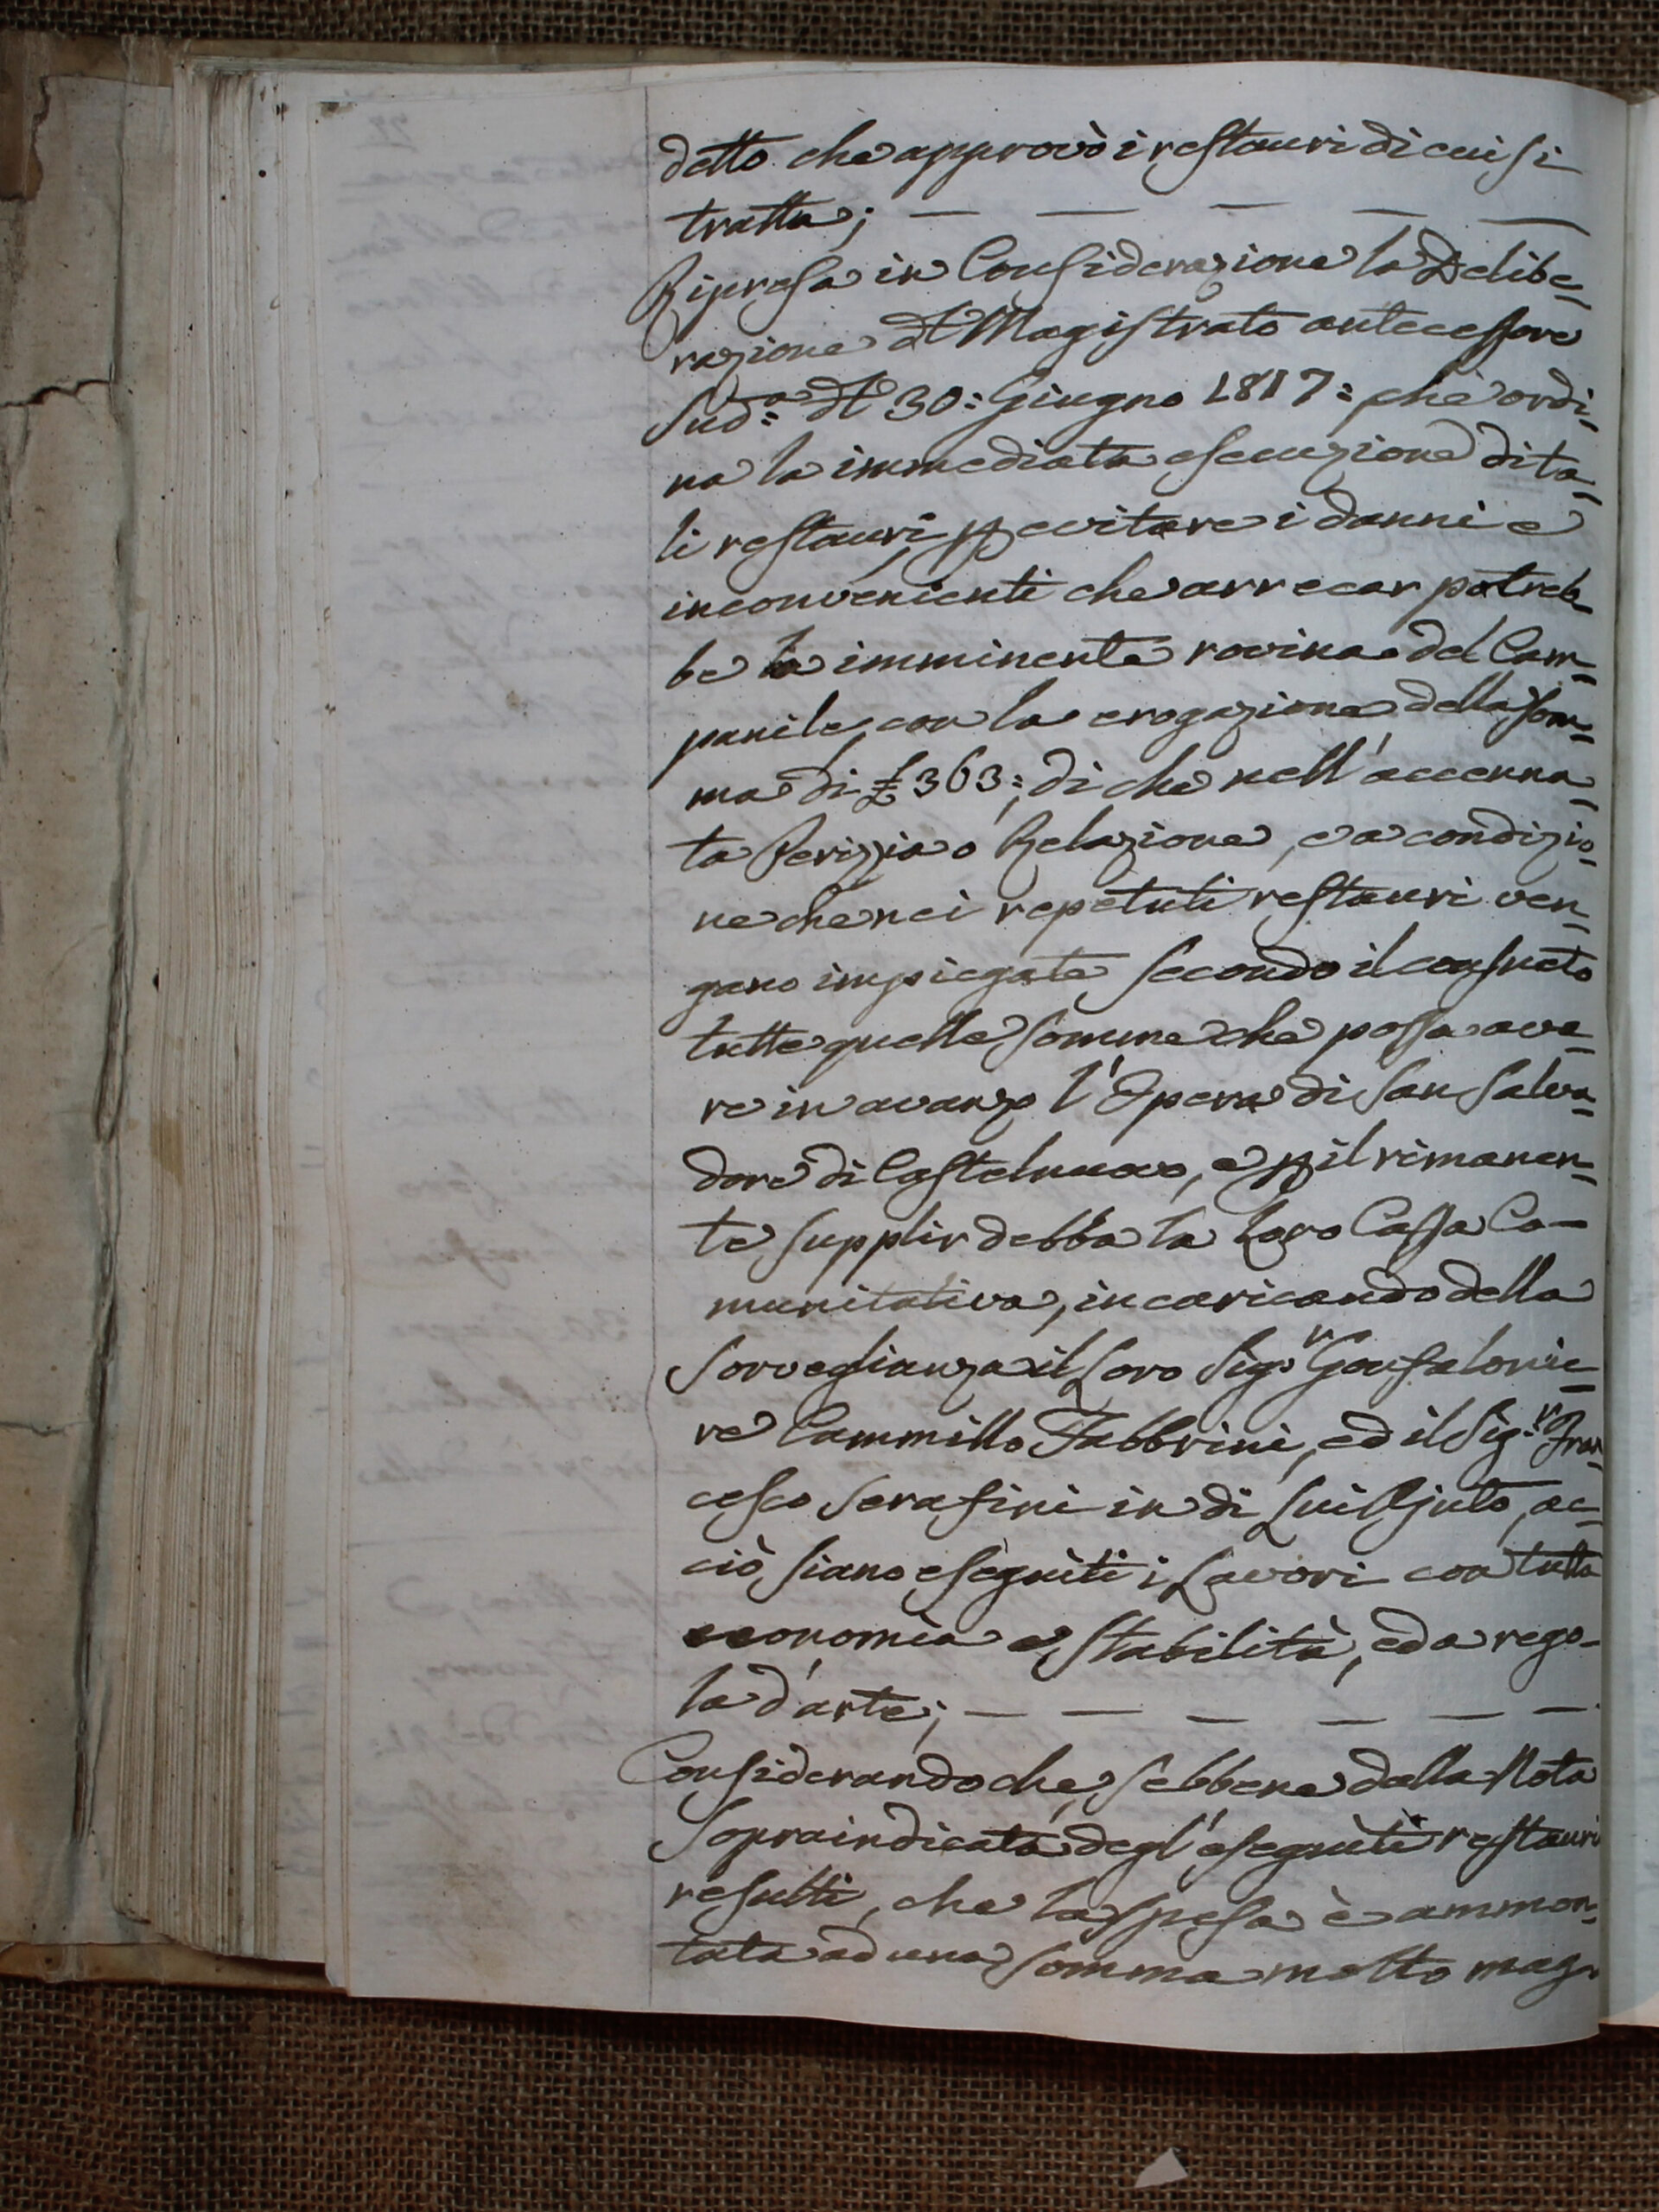 detto che approvò i restauri di cui si
tratta; — — — — —
Ripresa in Considerazione la Delibe=
razione del Magistrato antecessore
Sud.º del 30: Giugno 1817: che ordi=
na la immediata esecuzione di ta=
li restauri, p evitare i danni e
inconvenienti che arrecar potreb=
be la imminente rovina del Cam=
panile, con la erogazione della som=
ma di £ 363:, di che nell'accenna=
ta Perizia o Relazione, e a condizio=
ne che nei repetuti restauri ven=
gano impiegate secondo il consueto
tutte quelle somme che possa ave=
re in avanzo l'Opera di San Salva=
dore di Castelnuovo, e p il rimanen=
te supplir debba la Loro Cassa Co-
munitativa, incaricando della
sorveglianza il Loro Sig.r Gonfalonie=
re Cammillo Fabbrini, ed il Sig.r Fran=
cesco Serafini in di Lui Ajuto, ac=
ciò siano eseguiti i Lavori con tutta
economia e stabilità, ed a rego-
la d'arte; — — — — — —
Considerando che, sebbene dalla Nota
sopraindicata degl'eseguiti restauri
resulti, che la spesa è ammon=
tata ad una somma molto mag=